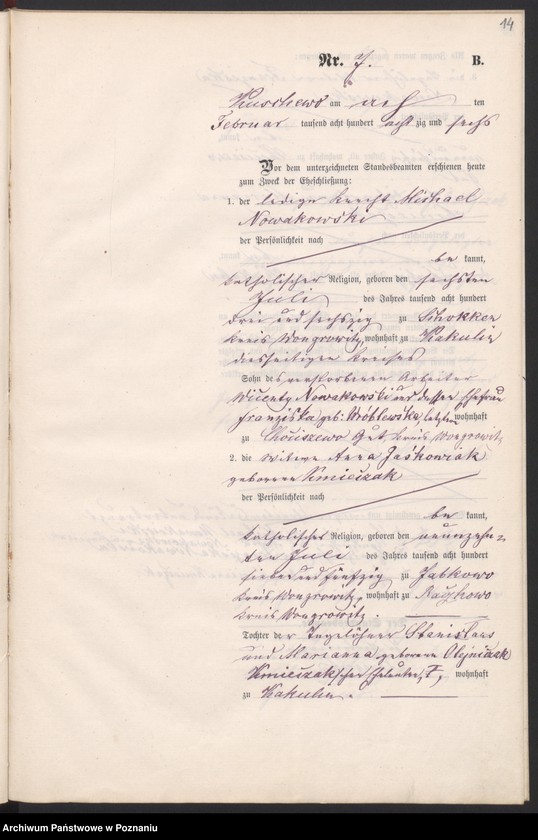 14
Nr. 7. B.
Kuschewo am acht ten
Februar tausend acht hundert acht zig und sechs
Vor dem unterzeichneten Standesbeamten erschienen heute
zum Zweck der Eheschließung:
1. der ledige Knecht Michael
Nowakowski
der Persönlichkeit nach
be kannt,
katholischer Religion, geboren den sechsten
Juli des Jahres tausend acht hundert
drei und sechszig zu Schokken
Kreis Wongrowitz, wohnhaft zu Kakulin
diesseitigen Kreises
Sohn des verstorbenen Arbeiter
Wincenty Nowakowski und dessen Ehefrau
Franziska geb. Wróblewska, letztere wohnhaft
zu Gut, Kreis Wongrowitz
2. die Witwe Anna Jaśkowiak
geborene Kmieczak
der Persönlichkeit nach
be kannt,
katholischer Religion, geboren den neunzehn-
ten Juli des Jahres tausend acht hundert
sieben und fünfzig zu Jabkowo
Kreis Wongrowitz, wohnhaft zu
Kreis Wongrowitz.
Tochter der Tagelöhner Stanislaus
und Marianna geborene Olejniczak
Kmieczak'schen Eheleute, †, wohnhaft
zu Kakulin.
Archiwum Państwowe w Poznaniu